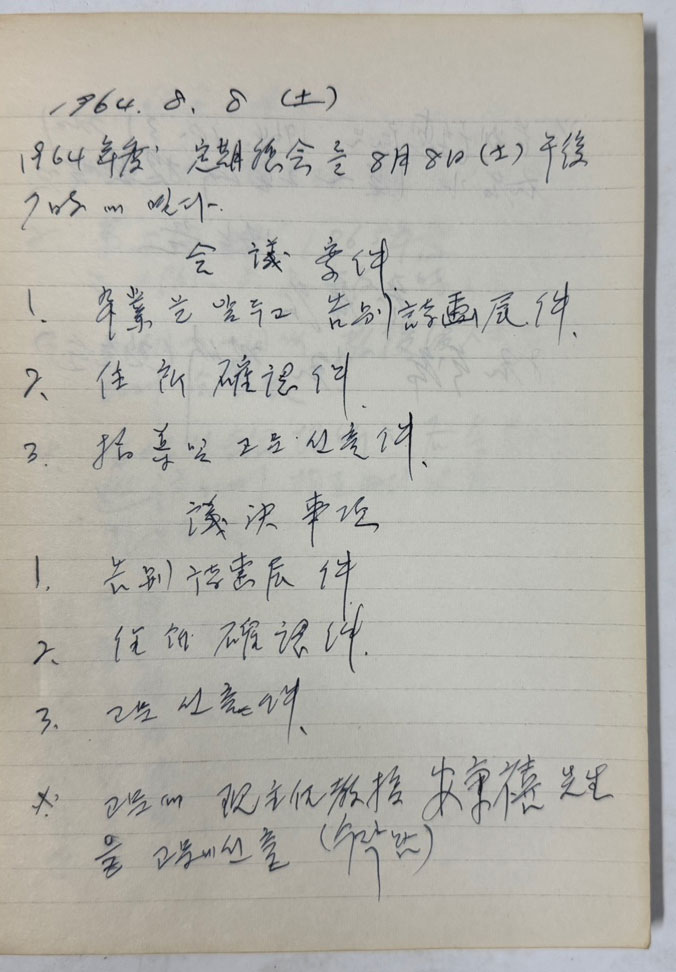 1964. 8. 8 (土)
1964年度 定期総会를 8月 8日(土) 午後
7時에 열다.
会議案件
1. 卒業을 앞두고 告別詩画展件.
2. 住所確認件.
3. 및 고문 선출件.
議決事項
1. 告別詩畵展件
2. 住所確認件.
3. 고문 선출件.
※ 고문에 現主任教授 安東禧 先生
을 고문에 선출 (수락함)